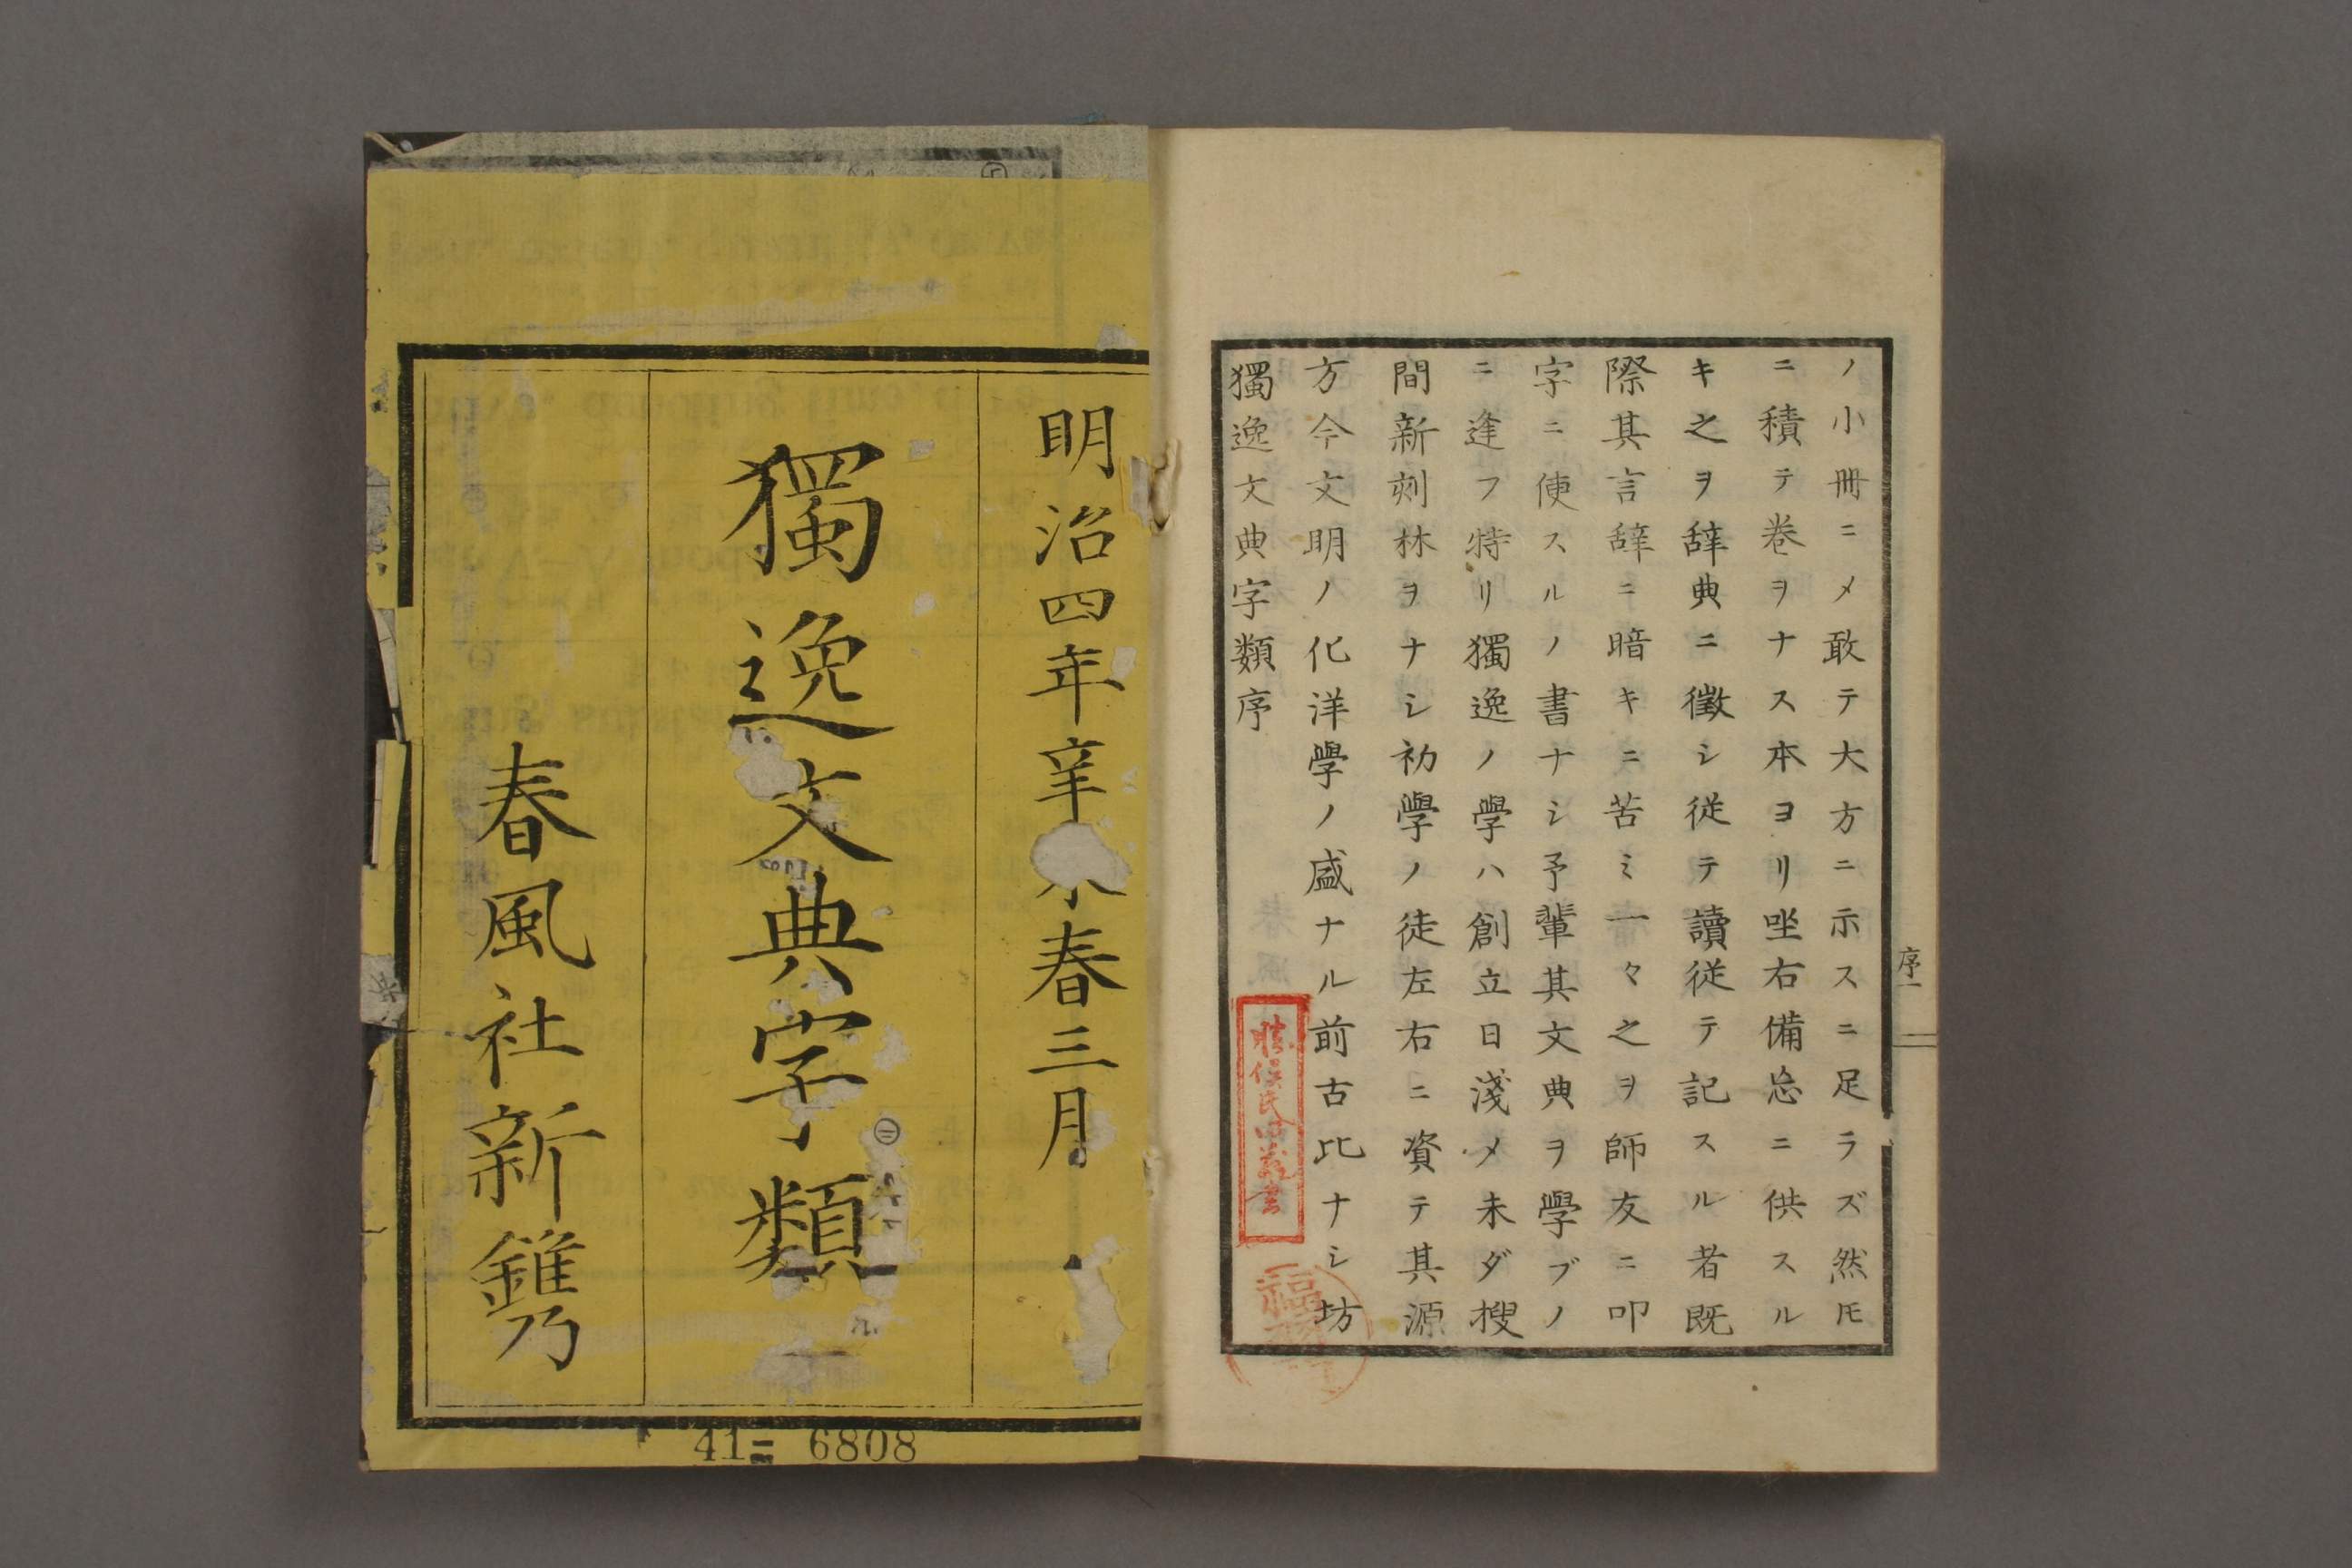 明治四年辛春三月
獨逸文典字類
春風社新鐫
41= 6808
獨逸文典字類序
方今文明ノ化洋學ノ盛ナル前古比ナシ坊
間新刻林ヲナシ初學ノ徒左右ニ資テ其源
ニ逢フ特リ獨逸ノ學ハ創立日淺メ未ダ搜
字ニ便スルノ書ナシ予輩其文典ヲ學ブノ
際其言辞ニ暗キニ苦ミ一々之ヲ師友ニ叩
キ之ヲ辞典ニ徴シ従テ讀従テ記スル者既
ニ積テ巻ヲナス本ヨリ坐右備忘ニ供スル
ノ小冊ニメ敢テ大方ニ示スニ足ラズ然𪜈
序一